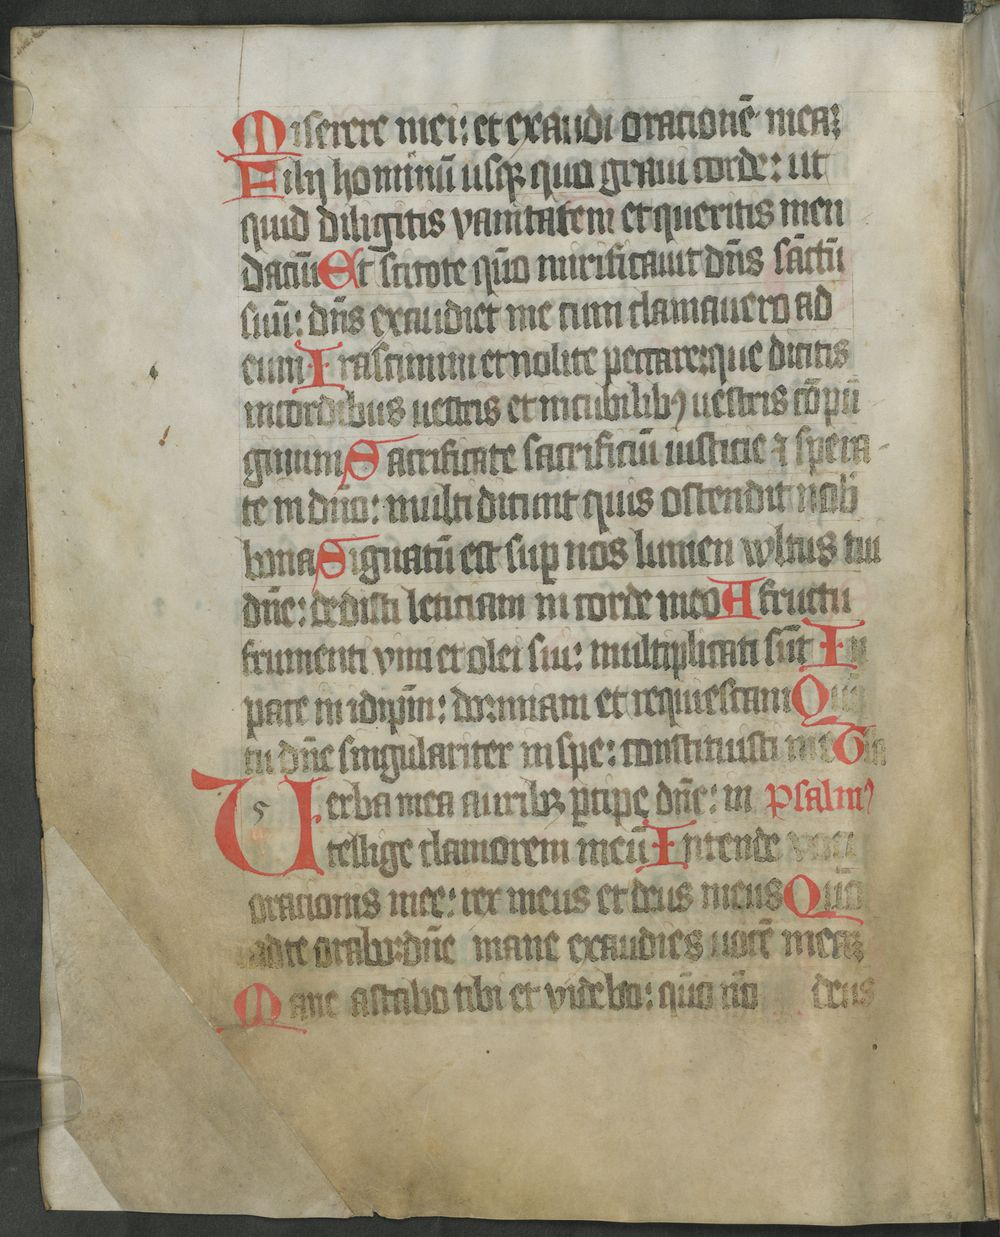 Miserere mei: et exaudi orationē meaꝫ
Filij hominū usqꝫ quo graui corde: ut
quid diligitis vanitatem et queritis men
daciū Et scitote qūo mirificauit dn̄s sāctū
suū: dn̄s exaudiet me cum clamauero ad
eum Irascimini et nolite peccare: que dicitis
in cordibus uestris et in cubilibꝰ uestris cōpū
gimini Sacrificate sacrificiū iusticie ⁊ spera
te in dn̄o: multi dicunt quis ostendit nob̄
bona Signatū est suꝑ nos lumen wltus tui
dn̄e: dedisti leticiam in corde meo A fructu
frumenti vini et olei sui: multiplicati sūt In
pace in idip̄m: dormiam et requiescam Qm̄
tu dn̄e singulariter in spe: constituisti me Gla
5 Uerba mea auribꝫ ꝑcipe dn̄e: in psalmꝰ
tellige clamorem meū Intende voci
orationis mee: rex meus et deus meus Qūo
ad te orabo: dn̄e mane exaudies uocē meaꝫ
Mane astabo tibi et videbo: qūo nō deus